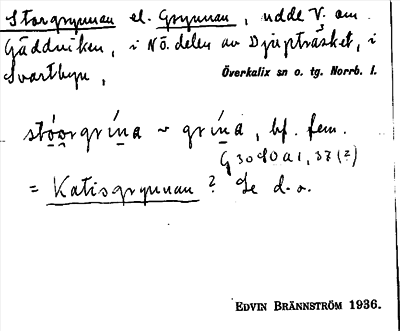 Storgrynnan el. Grynnan, udde V. om
Gäddviken, i NÖ. delen av Djupträsket, i
Svartbyn,
Överkalix sn o. tg. Norrb. l.
stóorgrína ~ grína, bf. fem.
G 3090 a 1, 37 (?)
= Katisgrynnan? Se d.o.
EDVIN BRÄNNSTRÖM 1936.